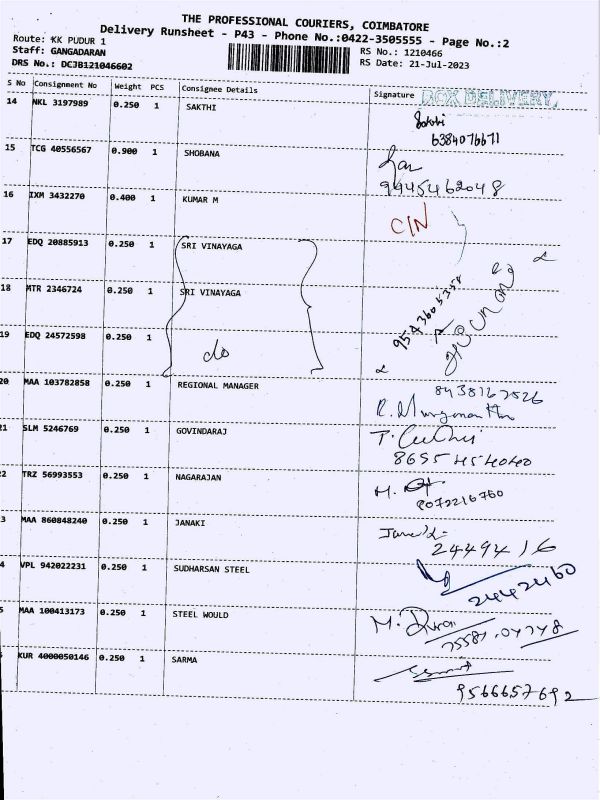 THE PROFESSIONAL COURIERS, COIMBATORE
Delivery Runsheet - P43 - Phone No.:0422-3505555 - Page No.:2
Route: KK PUDUR 1
Staff: GANGADARAN
DRS No.: DCJB121046602
RS No.: 1210466
RS Date: 21-Jul-2023
S No Consignment No Weight PCS Consignee Details Signature BOX DELIVERY
14 NKL 3197989 0.250 1 SAKTHI Sakthi
6384076671
15 TCG 40556567 0.900 1 SHOBANA
9945462048
16 IXM 3432270 0.400 1 KUMAR M C/N
17 EDQ 20885913 0.250 1 SRI VINAYAGA
18 MTR 2346724 0.250 1 SRI VINAYAGA
19 EDQ 24572598 0.250 1 do
20 MAA 103782858 0.250 1 REGIONAL MANAGER 8438167526
21 SLM 5246769 0.250 1 GOVINDARAJ
8695454040
2 TRZ 56993553 0.250 1 NAGARAJAN M.
8072216760
3 MAA 860848240 0.250 1 JANAKI
2449416
4 VPL 942022231 0.250 1 SUDHARSAN STEEL
2442460
5 MAA 100413173 0.250 1 STEEL WOULD
75587.04748
KUR 4000050146 0.250 1 SARMA
9566657692